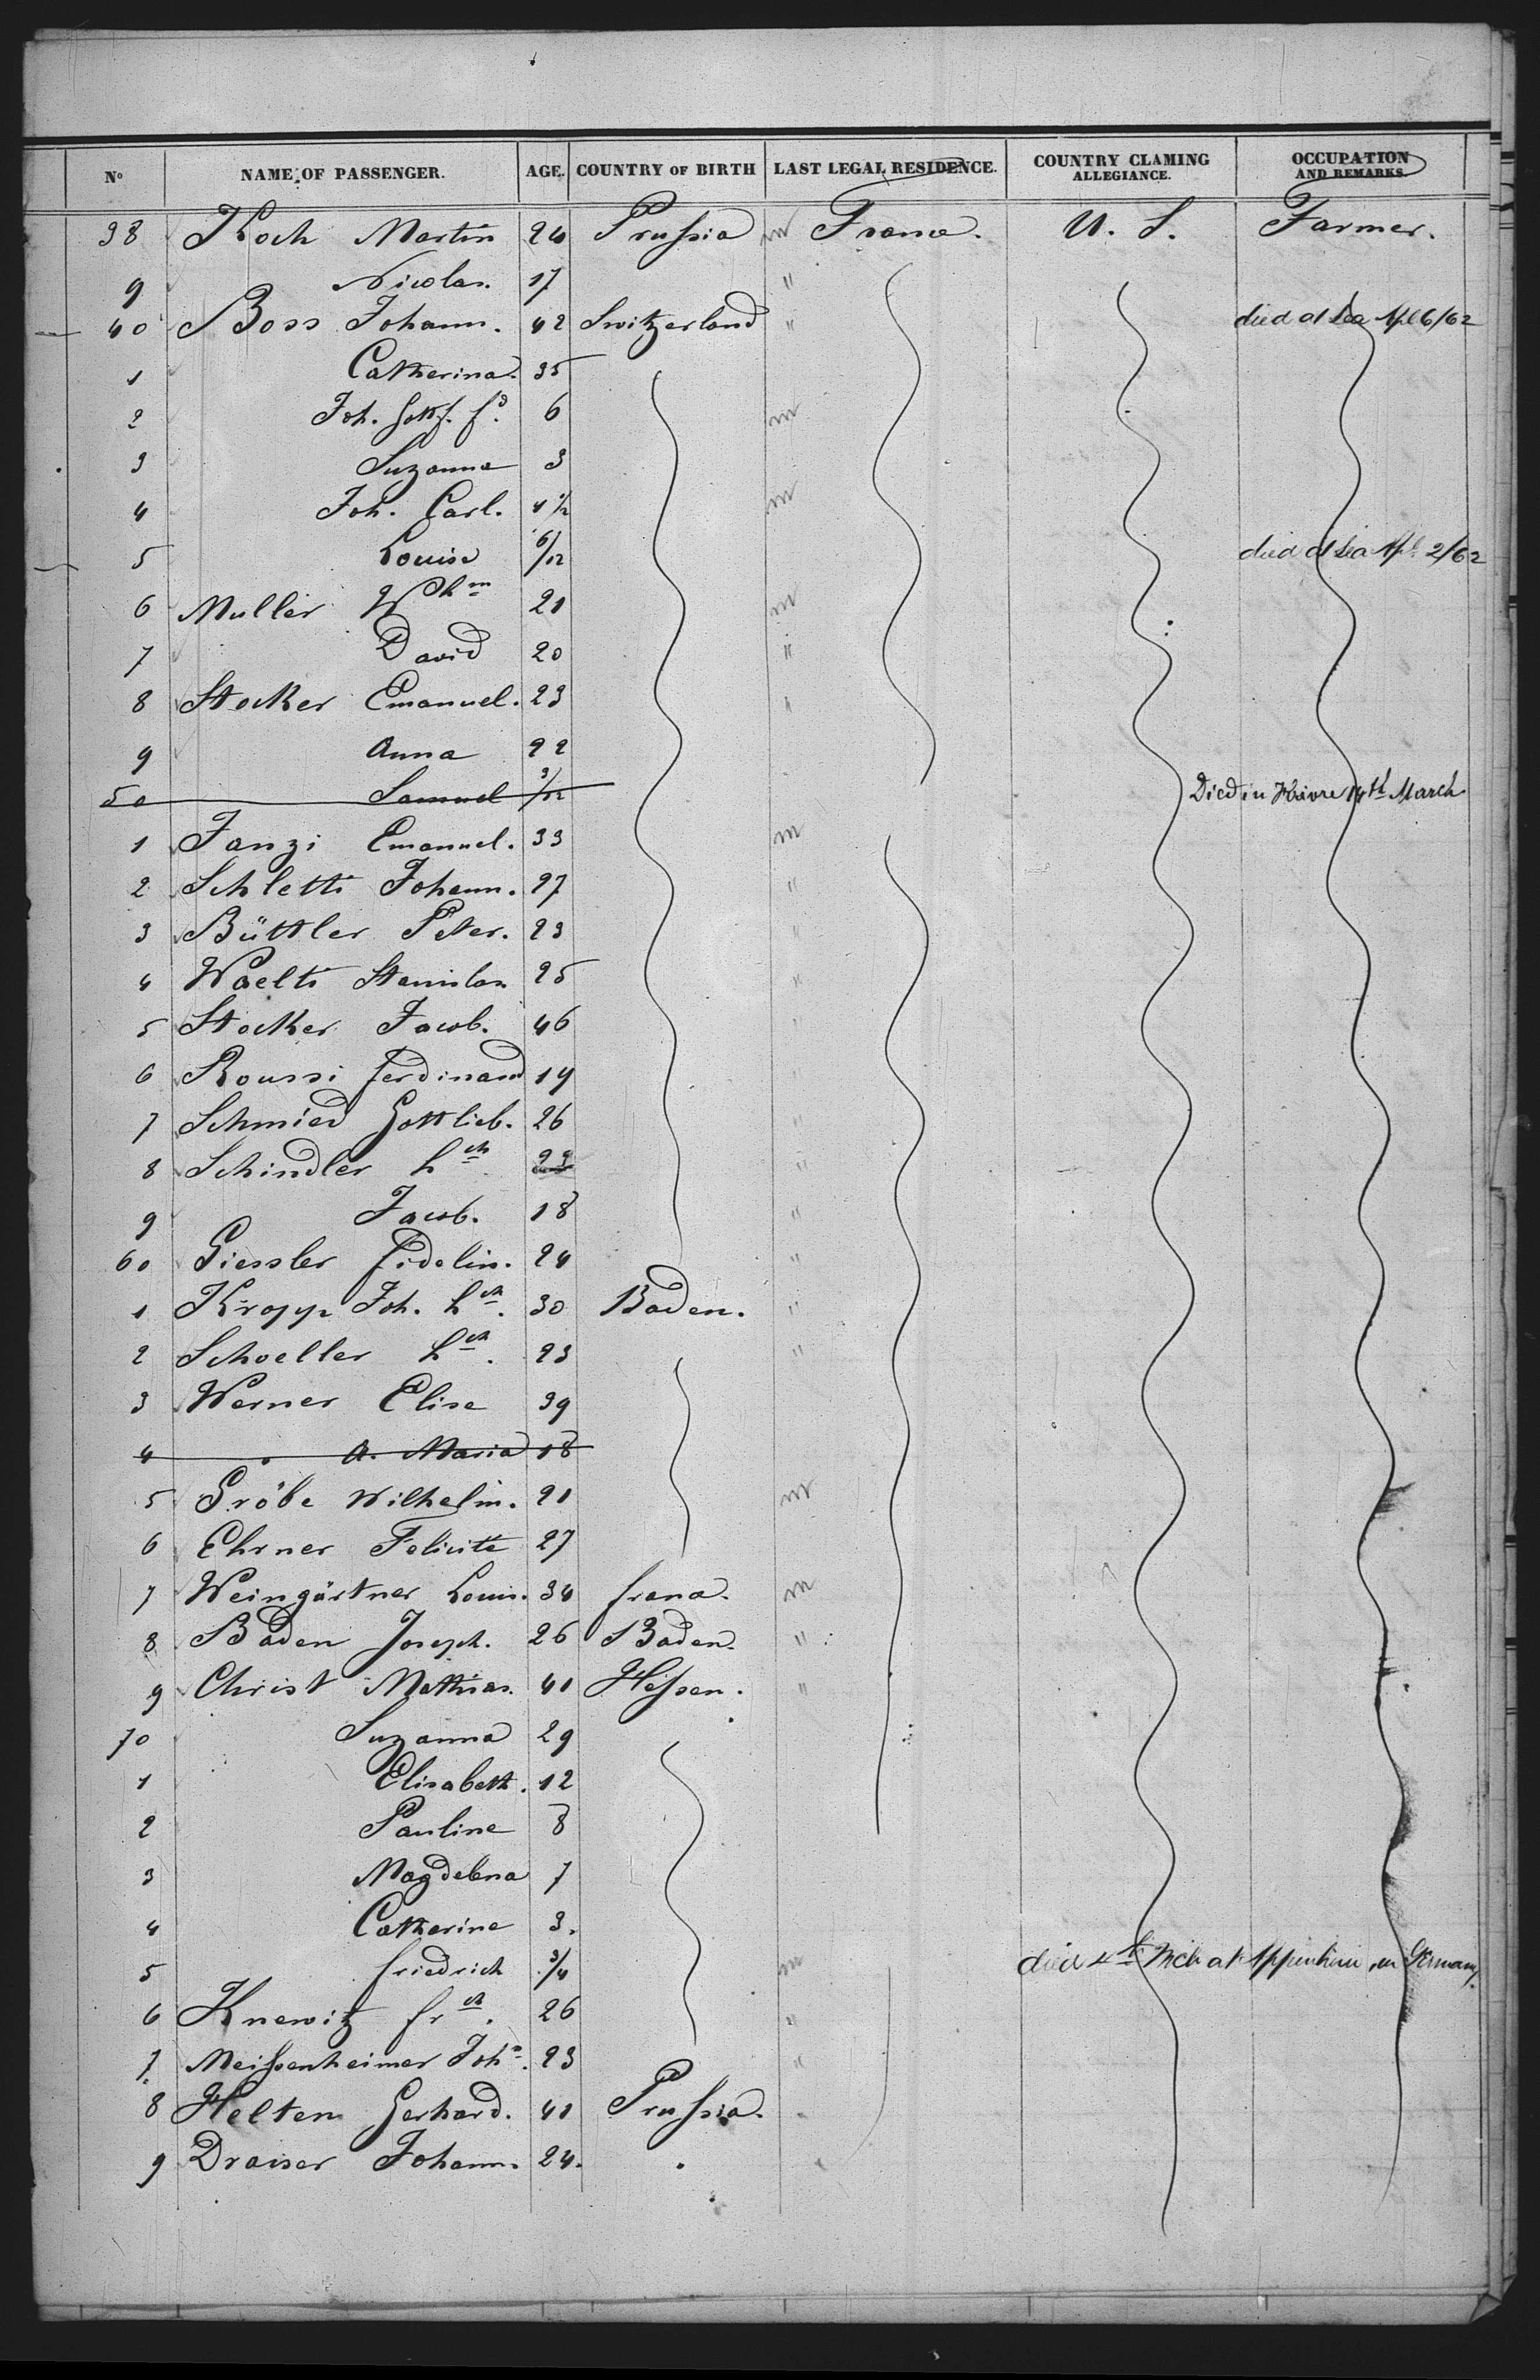 N° NAME OF PASSENGER. AGE. COUNTRY OF BIRTH LAST LEGAL RESIDENCE. COUNTRY CLAMING ALLEGIANCE. OCCUPATION AND REMARKS.
38 Koch Martin 24 Prussia m France. U. S. Farmer.
9 Nicolas. 17 "
40 Boss Johann. 42 Switzerland " died at Sea Apl 6/62
1 Catherina. 35
2 Joh. Gottf. fd. 6 m
3 Suzanna 3
4 Joh. Carl. 1 1/2 m
5 Louise 6/12 died at Sea Apl. 2/62
6 Muller Whm 21 m
7 David 20 "
8 Stocker Emanuel. 23 "
9 Anna 22
50 Samuel 3/12 Died in Havre 14th March
1 Janzi Emanuel. 33 m
2 Schletti Johann. 27 "
3 Büttler Peter. 23 "
4 Waelti Stanislas 25 "
5 Stocker Jacob. 46 "
6 Roussi ferdinand 19 "
7 Schmied Gottlieb. 26 "
8 Schindler hch 22 "
9 Jacob. 18 "
60 Giessler fidelin. 24 "
1 Kropp Joh. hch. 30 Baden. "
2 Schoeller hch. 23 "
3 Werner Elise 39
4 A. Maria 18
5 Gröbe Wilhelm. 21 m
6 Ehrner Felicité 27
7 Weingärtner Louis. 34 france. m
8 Baden Joseph. 26 Baden. "
9 Christ Mathias. 41 Hessen. "
70 Suzanna 29
1 Elisabeth. 12
2 Pauline 8
3 Magdelena 7
4 Catherine 3.
5 friedrich 3/4 m died 4th Mch at Appenheim, in Germany.
6 Knewitz frch. 26 "
7 Meissenheimer John. 23 "
8 Helten Gerhard. 41 Prussia. "
9 Draiser Johann. 24. "